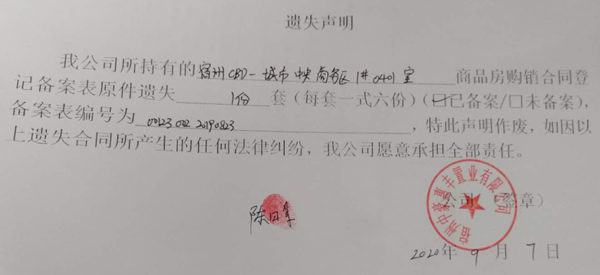 遗失声明
我公司所持有的宿州CBD-城市中央商务区1#0401室 商品房购销合同登
记备案表原件遗失 1份 套（每套一式六份）（☑已备案/☐未备案），
备案表编号为 20190823，特此声明作废，如因以
上遗失合同所产生的任何法律纠纷，我公司愿意承担全部责任。
公司（签章）
宿州中 丰置业有限公司
陈
2020年9月7日